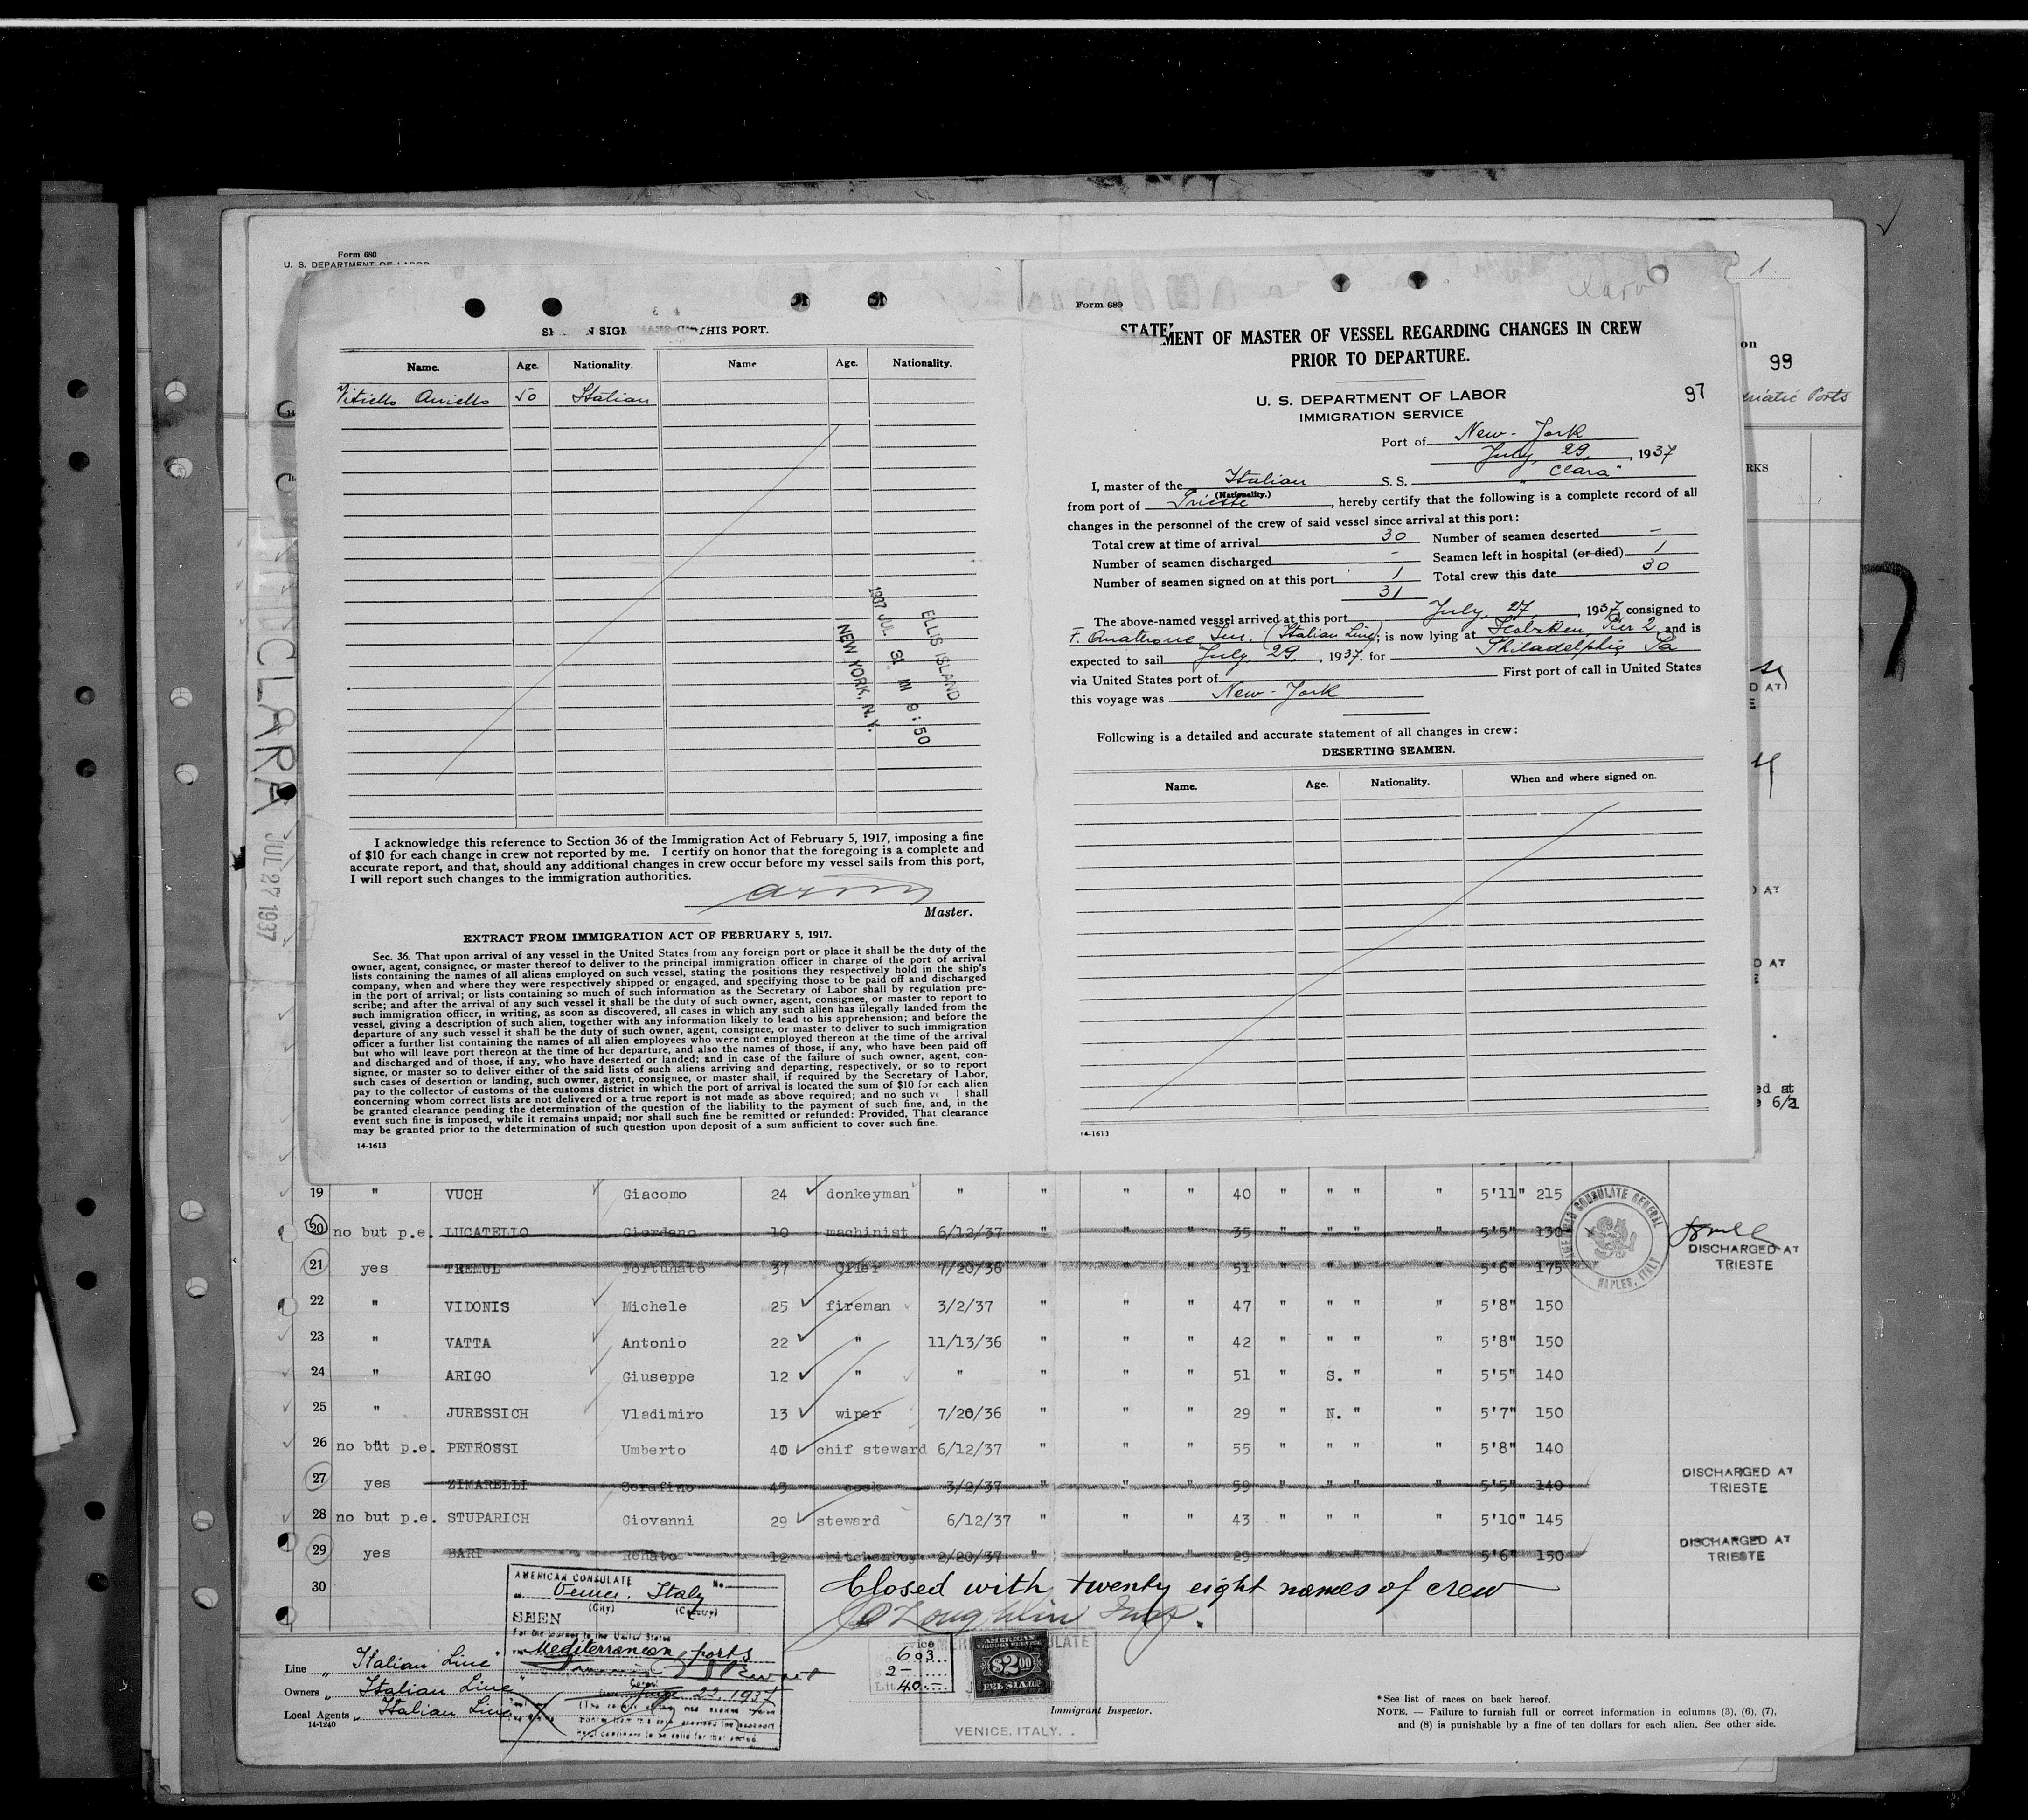 Form 680
U. S. DEPARTMENT OF LABOR
SIGN THIS PORT.
Name. Age. Nationality. Name Age. Nationality.
Vitiello Aniello 50 Italian
ELLIS ISLAND
1937 JUL 31 AM 9:50
NEW YORK, N.Y.
I acknowledge this reference to Section 36 of the Immigration Act of February 5, 1917, imposing a fine
of $10 for each change in crew not reported by me. I certify on honor that the foregoing is a complete and
accurate report, and that, should any additional changes in crew occur before my vessel sails from this port,
I will report such changes to the immigration authorities.
Master.
EXTRACT FROM IMMIGRATION ACT OF FEBRUARY 5, 1917.
Sec. 36. That upon arrival of any vessel in the United States from any foreign port or place it shall be the duty of the
owner, agent, consignee, or master thereof to deliver to the principal immigration officer in charge of the port of arrival
lists containing the names of all aliens employed on such vessel, stating the positions they respectively hold in the ship's
company, when and where they were respectively shipped or engaged, and specifying those to be paid off and discharged
in the port of arrival; or lists containing so much of such information as the Secretary of Labor shall by regulation pre-
scribe; and after the arrival of any such vessel it shall be the duty of such owner, agent, consignee, or master to report to
such immigration officer, in writing, as soon as discovered, all cases in which any such alien has illegally landed from the
vessel, giving a description of such alien, together with any information likely to lead to his apprehension; and before the
departure of any such vessel it shall be the duty of such owner, agent, consignee, or master to deliver to such immigration
officer a further list containing the names of all alien employees who were not employed thereon at the time of the arrival
but who will leave port thereon at the time of her departure, and also the names of those, if any, who have been paid off
and discharged and of those, if any, who have deserted or landed; and in case of the failure of such owner, agent, con-
signee, or master so to deliver either of the said lists of such aliens arriving and departing, respectively, or so to report
such cases of desertion or landing, such owner, agent, consignee, or master shall, if required by the Secretary of Labor,
pay to the collector of customs of the customs district in which the port of arrival is located the sum of $10 for each alien
concerning whom correct lists are not delivered or a true report is not made as above required; and no such shall
be granted clearance pending the determination of the question of the liability to the payment of such fine, and, in the
event such fine is imposed, while it remains unpaid; nor shall such fine be remitted or refunded: Provided, That clearance
may be granted prior to the determination of such question upon deposit of a sum sufficient to cover such fine.
14-1613
CLARA JUL 27 1937
Form 689
STATEMENT OF MASTER OF VESSEL REGARDING CHANGES IN CREW
PRIOR TO DEPARTURE.
U. S. DEPARTMENT OF LABOR
IMMIGRATION SERVICE
97
Port of New-York
July, 29, 1937
I, master of the Italian S. S. "Clara"
(Nationality.)
from port of Trieste, hereby certify that the following is a complete record of all
changes in the personnel of the crew of said vessel since arrival at this port:
Total crew at time of arrival 30 Number of seamen deserted -
Number of seamen discharged - Seamen left in hospital (or died) 1
Number of seamen signed on at this port 1 Total crew this date 30
31
The above-named vessel arrived at this port July, 27, 1937 consigned to
(Italian Line); is now lying at Hoboken, Pier 2 and is
expected to sail July, 29, 1937. for Philadelphia Pa
via United States port of First port of call in United States
this voyage was New-York
Following is a detailed and accurate statement of all changes in crew:
DESERTING SEAMEN.
Name. Age. Nationality. When and where signed on.
14-1613
1.
on
99
Adriatic Ports
RKS
D AT
ed at
19 " VUCH Giacomo 24 donkeyman " " " " 40 " " " " 5'11" 215
20 no but p.e. LUCATELLO Giordano 10 machinist 6/12/37 " " " 35 " " " " 5'5" 130
21 yes TREMUL Fortunato 37 Oiler 7/20/36 " " " 51 " " " " 5'6" 175
AMERICAN CONSULATE GENERAL
NAPLES, ITALY
DISCHARGED AT
TRIESTE
22 " VIDONIS Michele 25 fireman 3/2/37 " " " 47 " " " " 5'8" 150
23 " VATTA Antonio 22 " 11/13/36 " " " 42 " " " " 5'8" 150
24 " ARIGO Giuseppe 12 " " " " " 51 " S. " " 5'5" 140
25 " JURESSICH Vladimiro 13 wiper 7/20/36 " " " 29 " N. " " 5'7" 150
26 no but p.e. PETROSSI Umberto 40 chif steward 6/12/37 " " " 55 " " " " 5'8" 140
27 yes ZIMARELLI Serafino 43 cook 3/2/37 " " " 59 " " " " 5'5" 140 DISCHARGED AT
TRIESTE
28 no but p.e. STUPARICH Giovanni 29 steward 6/12/37 " " " 43 " " " " 5'10" 145
29 yes BARI Renato 12 kitchenboy 2/20/37 " " " 29 " " " " 5'6" 150 DISCHARGED AT
TRIESTE
30 Closed with twenty eight names of crew
O'Loughlin Insp.
AMERICAN CONSULATE No
Venice, Italy
(City) (Country)
SEEN
For the journey to the United States
Mediterranean ports
June 22, 1937
Line " Italian Line"
Owners " Italian Line
Local Agents " Italian Line
14-1240
Service
603
2-
Lit 40.-
AMERICAN CONSULATE
AMERICAN
$2.00
FEE STAMP
VENICE, ITALY.
Immigrant Inspector.
*See list of races on back hereof.
NOTE. — Failure to furnish full or correct information in columns (3), (6), (7),
and (8) is punishable by a fine of ten dollars for each alien. See other side.